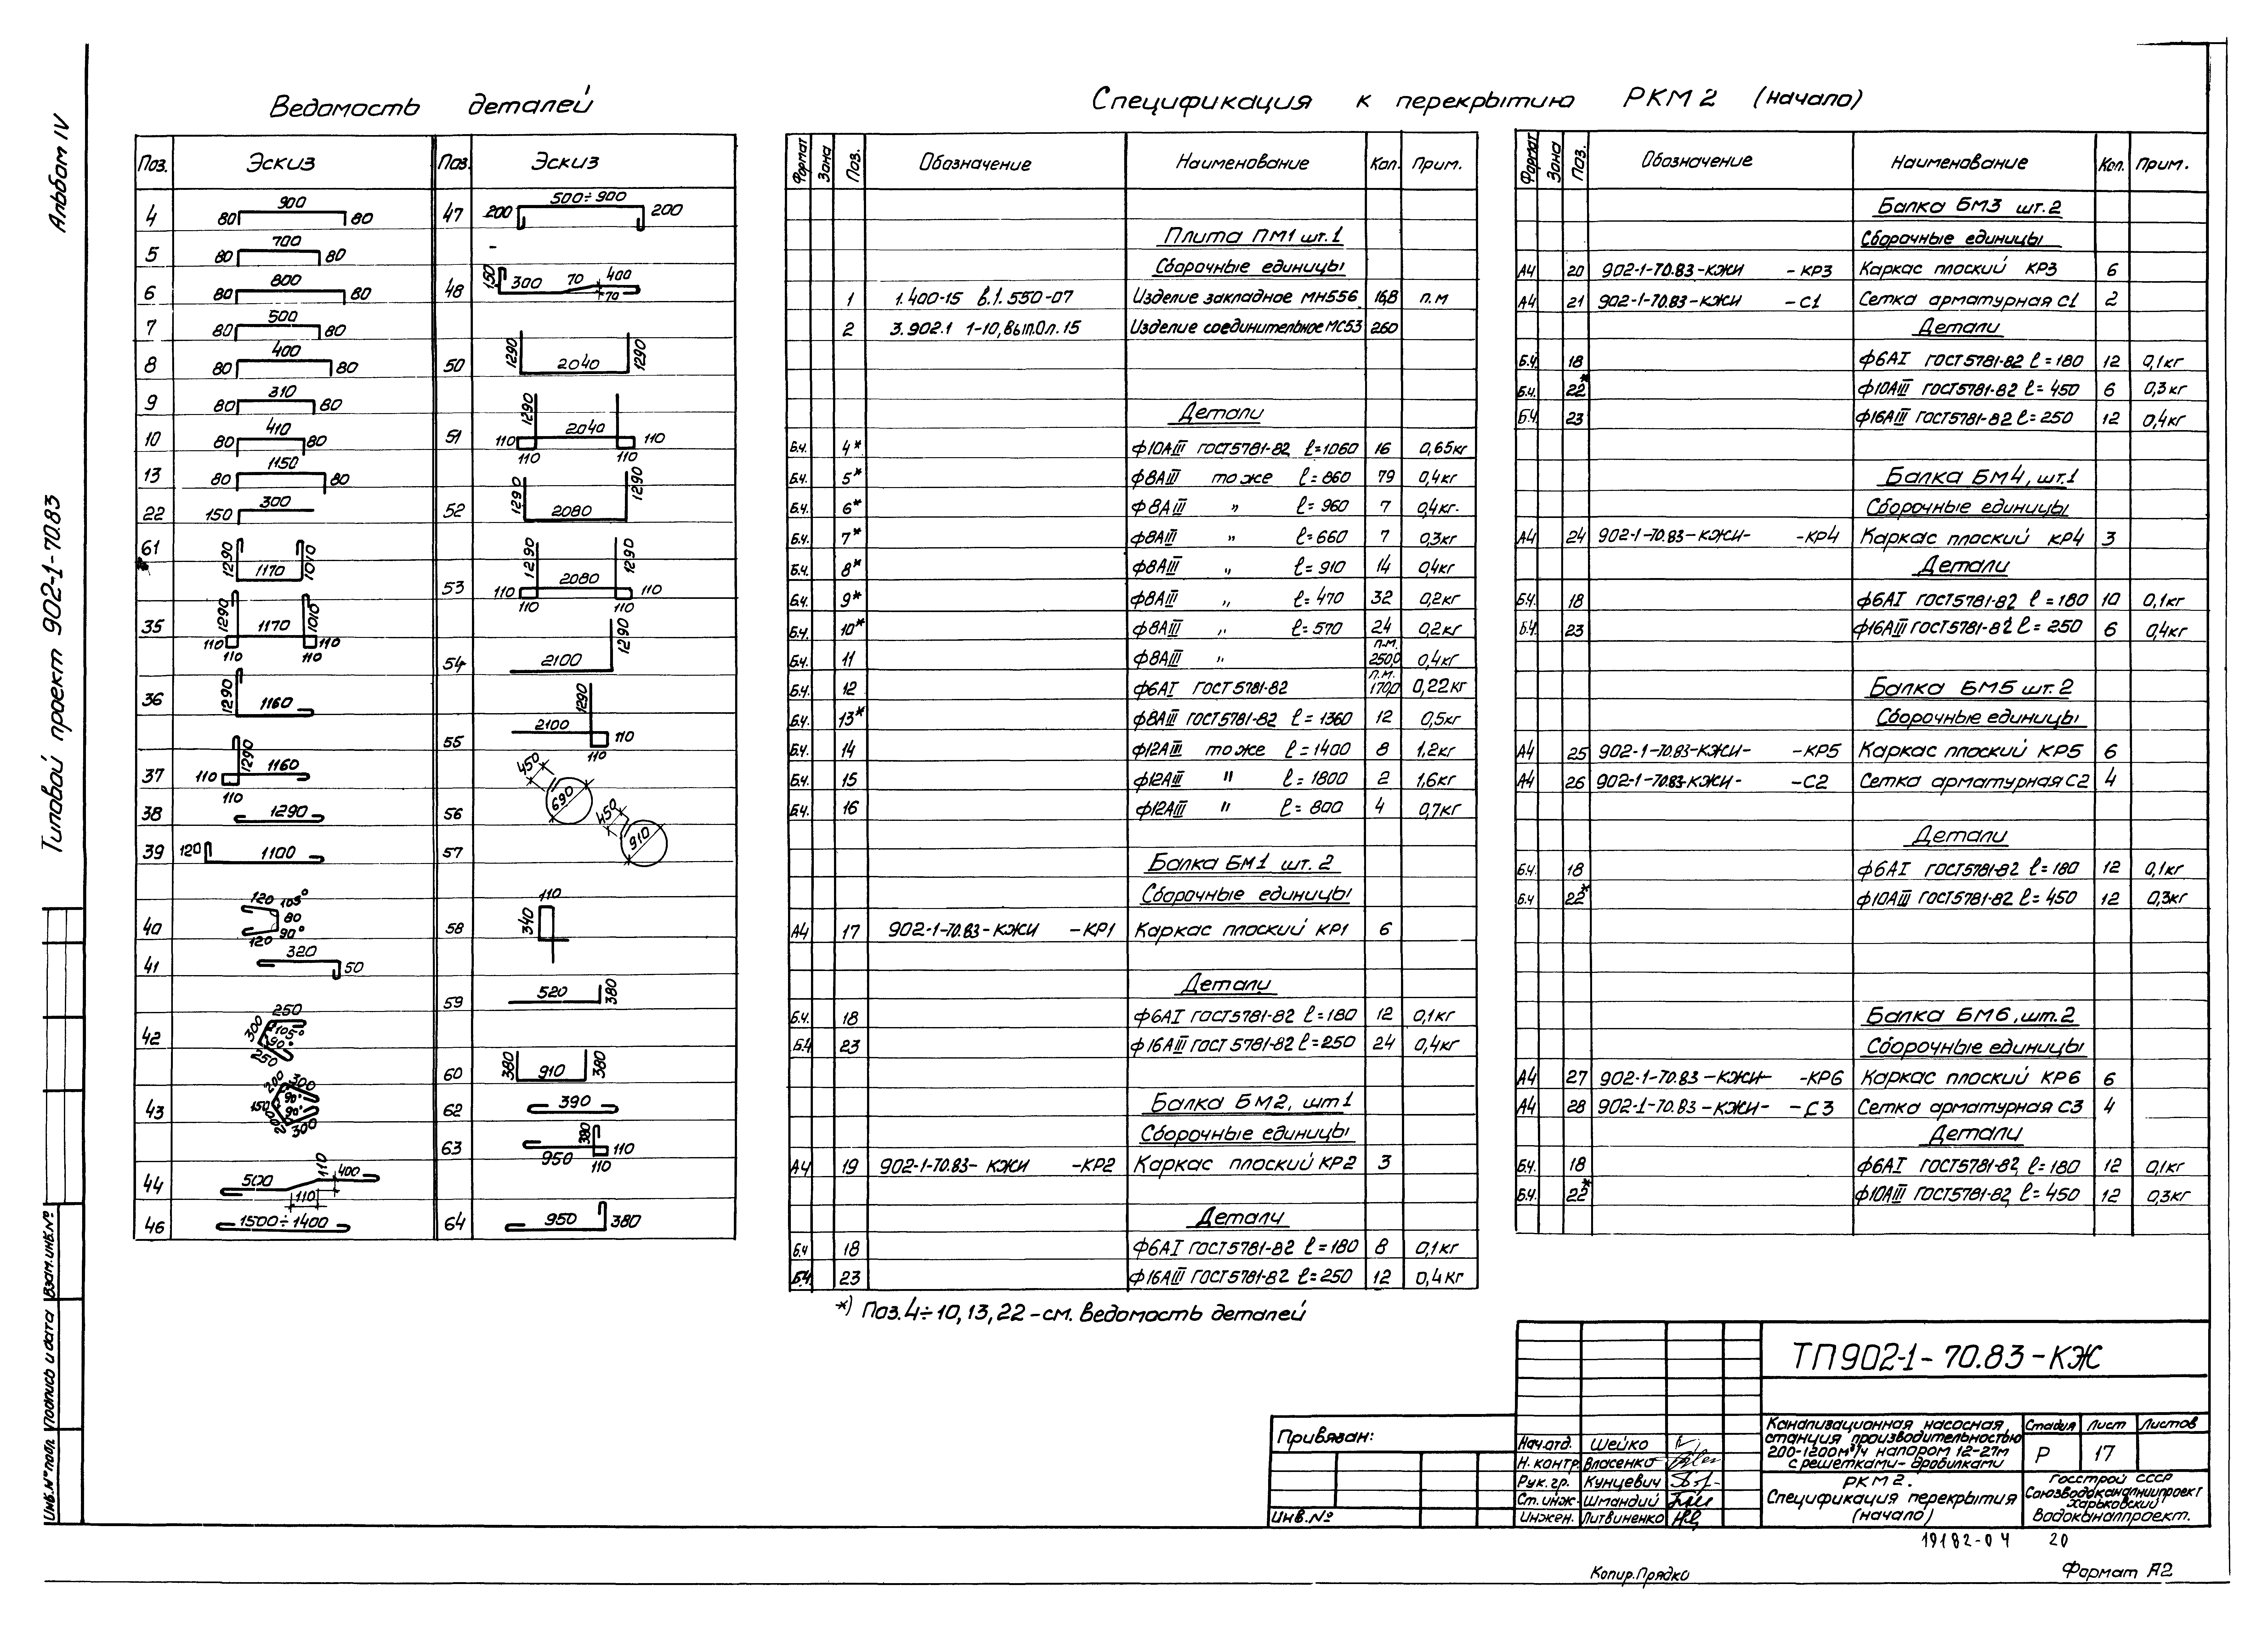 Альбом IV
Типовой проект 902-1-70.83
Ведомость деталей
Поз. Эскиз Поз. Эскиз
4 80 900 80
5 80 700 80
6 80 800 80
7 80 500 80
8 80 400 80
9 80 310 80
10 80 410 80
13 80 1150 80
22 150 300
61 1290 1170 1010
35 1290 1170 1010 110 110 110 110
36 1290 1160
37 1290 1160 110 110
38 1290
39 120 1100
40 120 105° 80 90° 120
41 320 50
42 250 300 105° 90° 250
43 200 300 90° 150 90° 200 300
44 500 110 400 110
46 1500÷1400
47 200 500÷900 200
48 180 300 70 400 70
50 1290 2040 1290
51 1290 2040 110 110 110 110
52 1290 2080 1290
53 1290 2080 1290 110 110 110 110
54 2100 1290
55 2100 1290 110 110
56 450 690
57 450 910
58 110 340
59 520 380
60 380 910 380
62 390
63 950 380 110 110
64 950 380
Спецификация к перекрытию РКМ2 (начало)
Формат Зона Поз. Обозначение Наименование Кол. Прим.
Плита ПМ1 шт.1
Сборочные единицы
1 1.400-15 в.1.550-07 Изделие закладное МН556 16,8 п.м
2 3.902.1 1-10, вып.0л.15 Изделие соединительное МС53 260
Детали
Б.ч. 4* ф10АIII ГОСТ5781-82 ℓ=1060 16 0,65кг
Б.ч. 5* ф8АIII то же ℓ=860 79 0,4кг
Б.ч. 6* ф8АIII " ℓ=960 7 0,4кг.
Б.ч. 7* ф8АIII " ℓ=660 7 0,3кг
Б.ч. 8* ф8АIII " ℓ=910 14 0,4кг
Б.ч. 9* ф8АIII " ℓ=470 32 0,2кг
Б.ч. 10* ф8АIII " ℓ=570 24 0,2кг
Б.ч. 11 ф8АIII " п.м. 250,0 0,4кг
Б.ч. 12 ф6АI ГОСТ5781-82 п.м. 170,0 0,22кг
Б.ч. 13* ф8АIII ГОСТ5781-82 ℓ=1360 12 0,5кг
Б.ч. 14 ф12АIII то же ℓ=1400 8 1,2кг
Б.ч. 15 ф12АIII " ℓ=1800 2 1,6кг
Б.ч. 16 ф12АIII " ℓ=800 4 0,7кг
Балка БМ1 шт. 2
Сборочные единицы
А4 17 902-1-70.83-КЖИ -КР1 Каркас плоский КР1 6
Детали
Б.ч. 18 ф6АI ГОСТ5781-82 ℓ=180 12 0,1кг
Б.ч 23 ф16АIII ГОСТ 5781-82 ℓ=250 24 0,4кг
Балка БМ2, шт1
Сборочные единицы
А4 19 902-1-70.83-КЖИ -КР2 Каркас плоский КР2 3
Детали
Б.ч 18 ф6АI ГОСТ5781-82 ℓ=180 8 0,1кг
Б.ч. 23 ф16АIII ГОСТ5781-82 ℓ=250 12 0,4кг
*) Поз.4÷10, 13, 22 -см. ведомость деталей
Формат Зона Поз. Обозначение Наименование Кол. Прим.
Балка БМ3 шт.2
Сборочные единицы
А4 20 902-1-70.83-КЖИ -КР3 Каркас плоский КР3 6
А4 21 902-1-70.83-КЖИ -С1 Сетка арматурная С1 2
Детали
Б.ч. 18 ф6АI ГОСТ5781-82 ℓ=180 12 0,1кг
Б.ч. 22* ф10АIII ГОСТ5781-82 ℓ=450 6 0,3кг
Б.ч. 23 ф16АIII ГОСТ5781-82 ℓ=250 12 0,4кг
Балка БМ4, шт.1
Сборочные единицы
А4 24 902-1-70.83-КЖИ- -КР4 Каркас плоский КР4 3
Детали
Б.ч. 18 ф6АI ГОСТ5781-82 ℓ=180 10 0,1кг
Б.ч. 23 ф16АIII ГОСТ5781-82 ℓ=250 6 0,4кг
Балка БМ5 шт.2
Сборочные единицы
А4 25 902-1-70.83-КЖИ- -КР5 Каркас плоский КР5 6
А4 26 902-1-70.83-КЖИ- -С2 Сетка арматурная С2 4
Детали
Б.ч. 18 ф6АI ГОСТ5781-82 ℓ=180 12 0,1кг
Б.ч 22* ф10АIII ГОСТ5781-82 ℓ=450 12 0,3кг
Балка БМ6, шт.2
Сборочные единицы
А4 27 902-1-70.83-КЖИ- -КР6 Каркас плоский КР6 6
А4 28 902-1-70.83-КЖИ- -С3 Сетка арматурная С3 4
Детали
Б.ч. 18 ф6АI ГОСТ5781-82 ℓ=180 12 0,1кг
Б.ч. 22* ф10АIII ГОСТ5781-82 ℓ=450 12 0,3кг
Привязан:
Инв.№
Нач.отд. Шейко
Н. контр. Власенко
Рук. гр. Кунцевич
Ст. инж. Шмандий
Инжен. Литвиненко
ТП902-1-70.83-КЖ
Канализационная насосная
станция производительностью
200-1200м³/ч напором 12-27м
с решетками-дробилками
Стадия Лист Листов
Р 17
РКМ2.
Спецификация перекрытия
(начало)
Госстрой СССР
Союзводоканалниипроект
Харьковский
Водоканалпроект.
19182-04 20
Копир. Прядко
Формат А2
Инв.№ подл. Подпись и дата Взам.инв.№